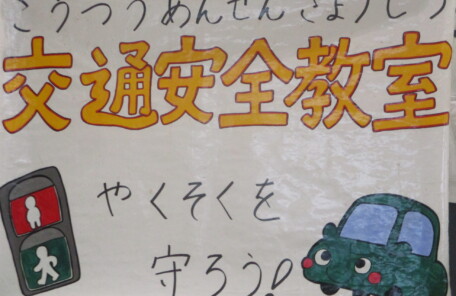 こうつうあんぜんきょうしつ
交通安全教室
やくそくを
守ろう!